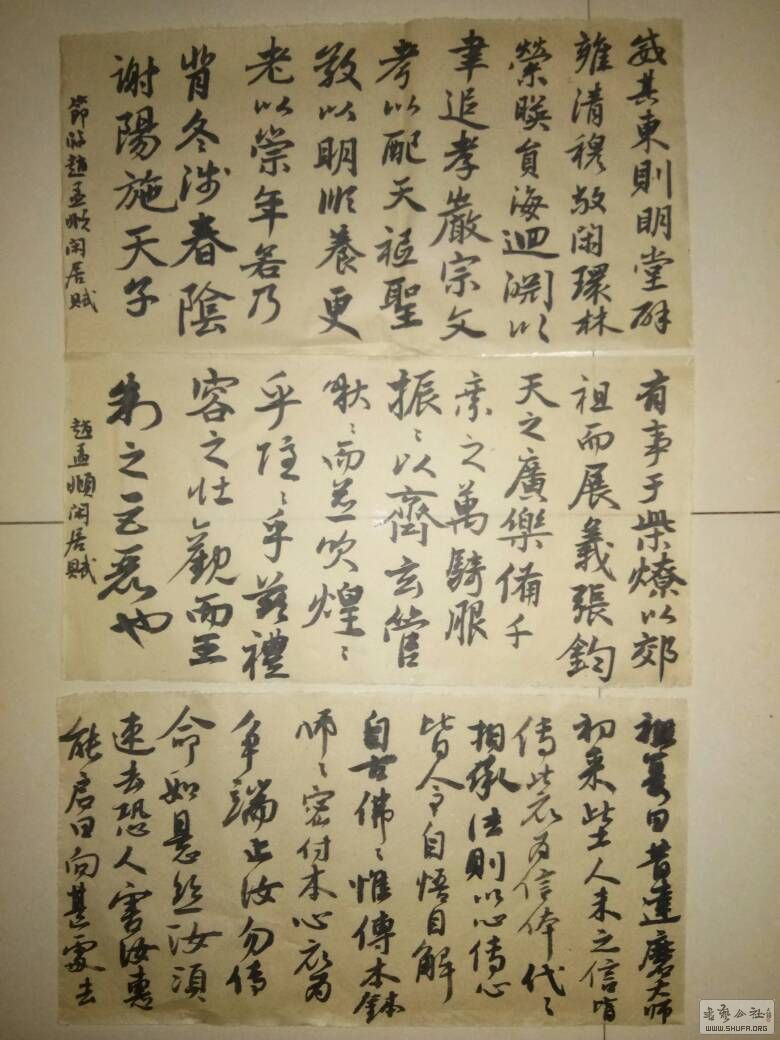 威其東則明堂辟
雍清穆敞閑環林
縈暎貟海迴渊以
聿追孝嚴宗文
考以配天祗聖
敬以明順養更
老以崇年若乃
背冬涉春陰
謝陽施天子
節临趙孟頫闲居賦
有事于柴燎以郊
祖而展義張鈞
天之廣樂備千
乘之萬騎服
振〻以齊玄管
啾〻而並吹煌〻
乎隱〻乎茲禮
容之壯觀而王
制之巨麗也
趙孟頫闲居賦
祖复曰昔達磨大師
初来此土人未之信故
傳此衣为信体代〻
相承法則以心傳心
皆令自悟自解
自古佛〻惟傳本体
師〻密付本心衣为
争端止汝勿傳
命如悬丝汝須
速去恐人害汝惠
能启曰向甚處去
書藝公社
WWW.SHUFA.ORG